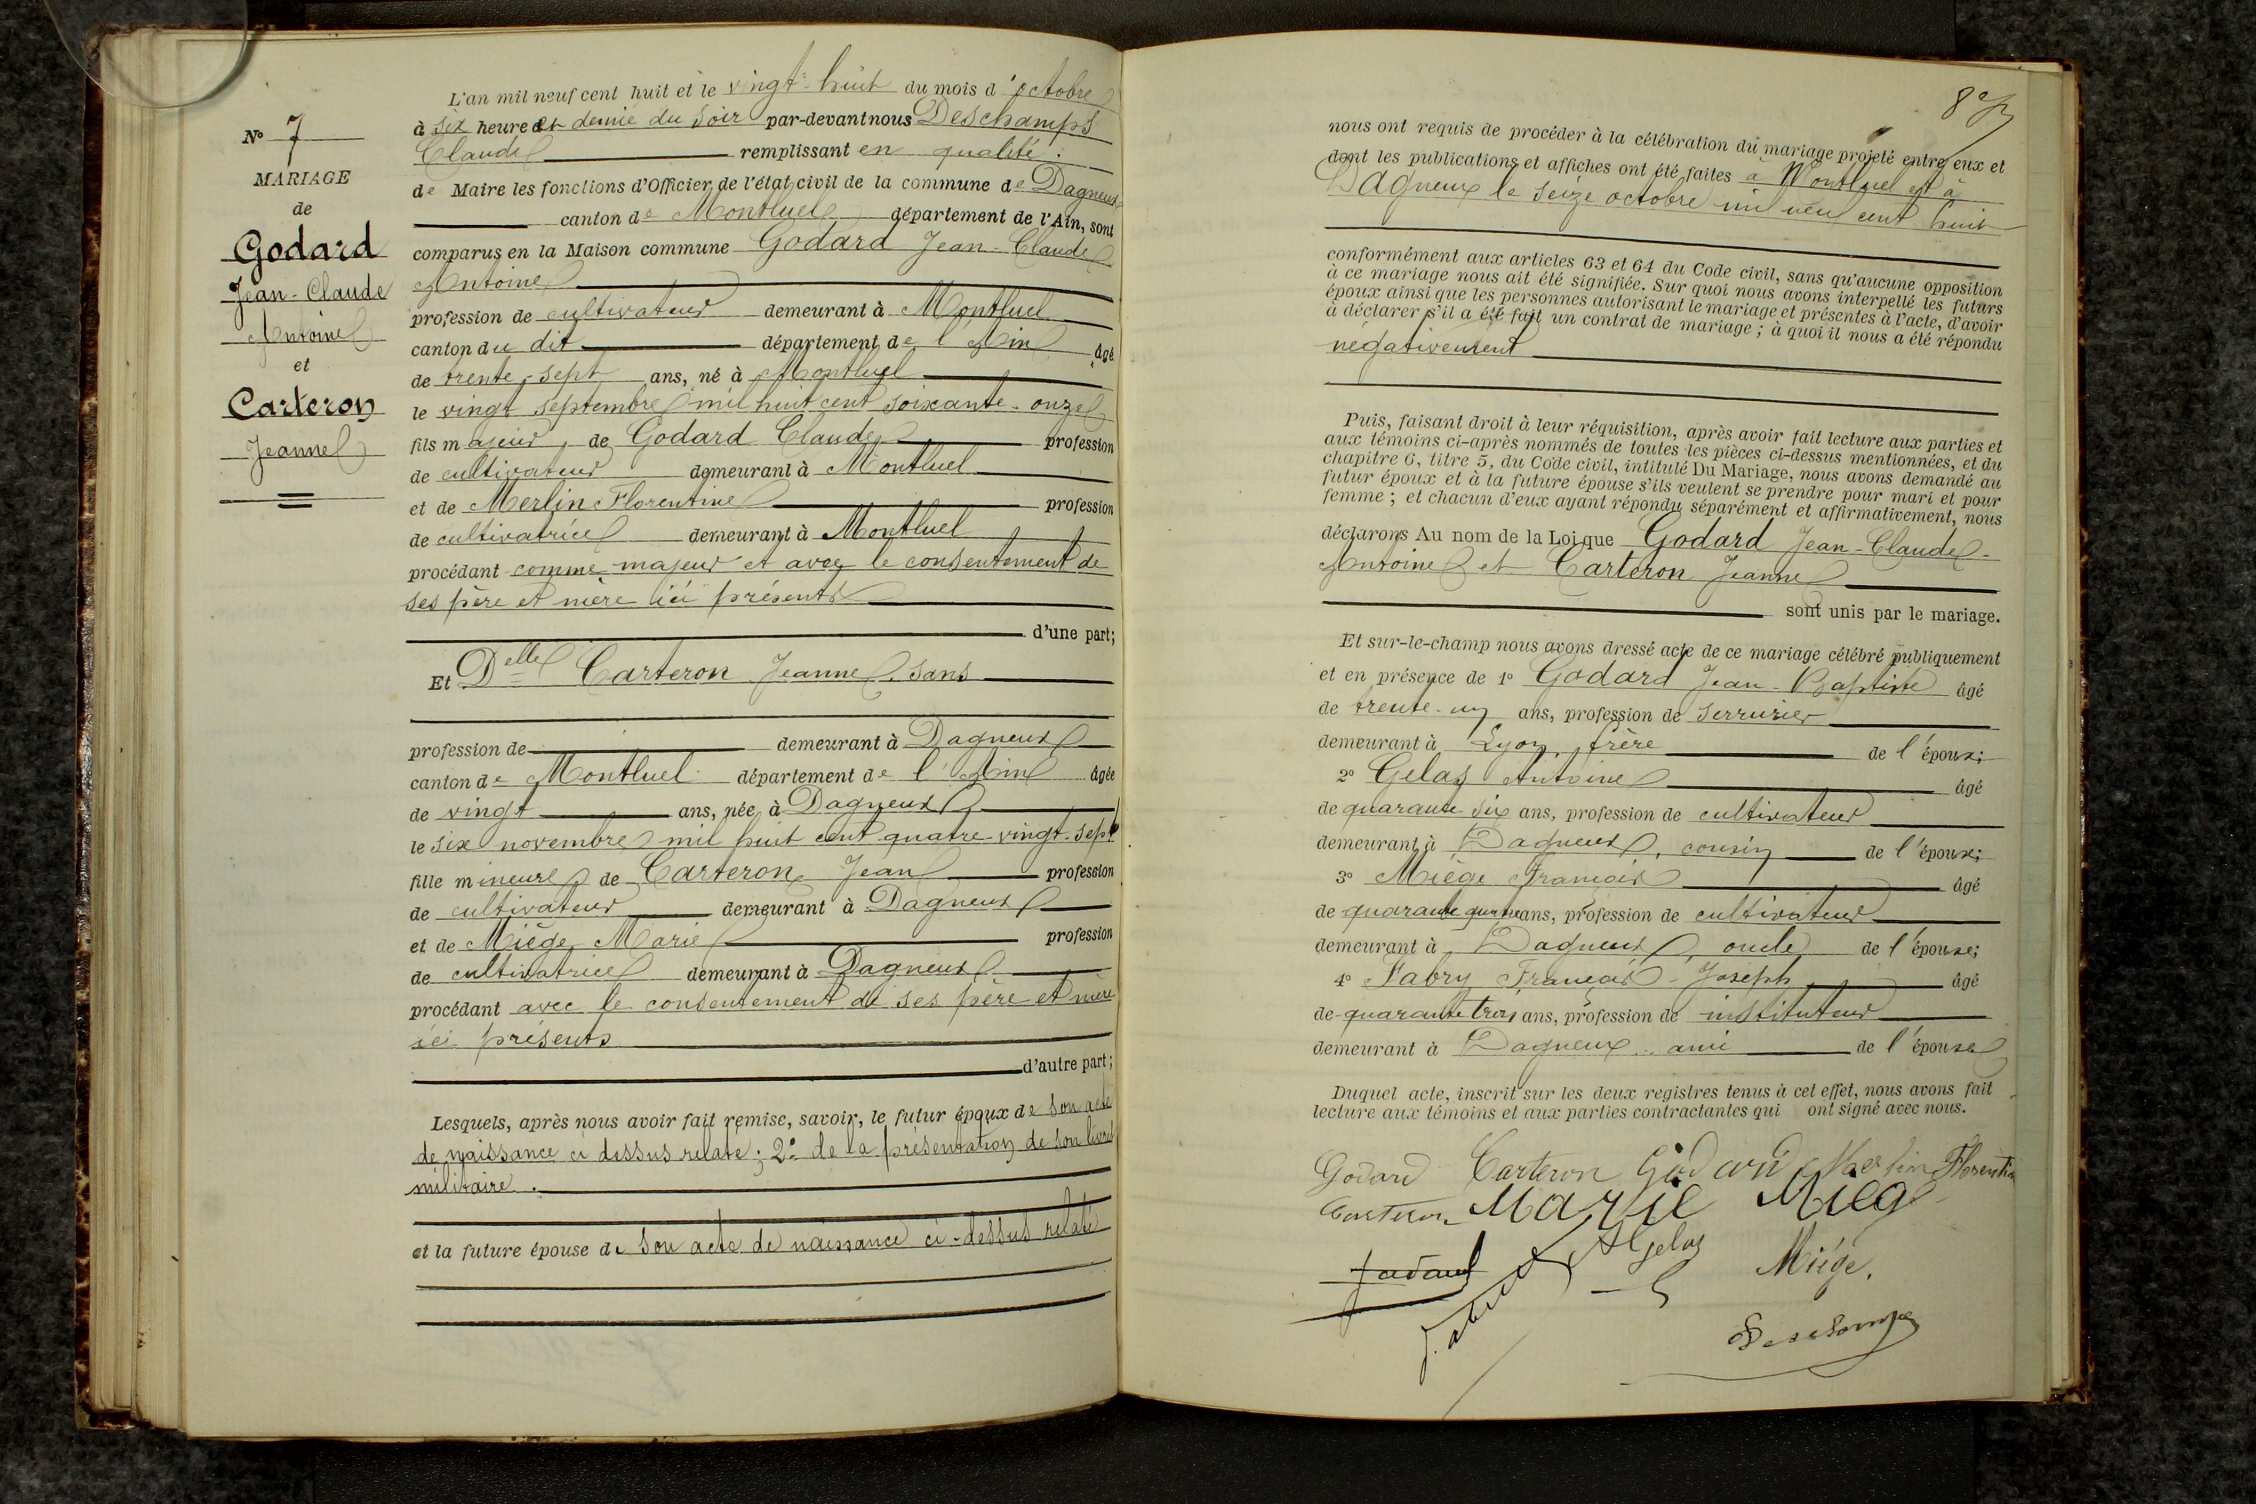 N° 7
MARIAGE
de
Godard
Jean-Claude
Antoine
et
Carteron
Jeanne
L'an mil neuf cent huit et le vingt-huit du mois d'octobre
à six heure et demie du soir par-devant nous Deschamps
Claude remplissant en qualité
de Maire les fonctions d'Officier de l'état civil de la commune de Dagneux
canton de Montluel département de l'Ain, sont
comparus en la Maison commune Godard Jean-Claude
Antoine
profession de cultivateur demeurant à Montluel
canton du dit département de l'Ain âgé
de trente-sept ans, né à Montluel
le vingt septembre mil huit cent soixante-onze
fils majeur de Godard Claude profession
de cultivateur demeurant à Montluel
et de Merlin Florentine profession
de cultivatrice demeurant à Montluel
procédant comme majeur et avec le consentement de
ses père et mère ici présents
d'une part;
Et Delle Carteron Jeanne, sans
profession de demeurant à Dagneux
canton de Montluel département de l'Ain âgée
de vingt ans, née à Dagneux
le six novembre mil huit cent quatre-vingt-sept
fille mineure de Carteron Jean profession
de cultivateur demeurant à Dagneux
et de Miège Marie profession
de cultivatrice demeurant à Dagneux
procédant avec le consentement de ses père et mère
ici présents
d'autre part;
Lesquels, après nous avoir fait remise, savoir, le futur époux de son acte
de naissance ci dessus relaté; 2° de la présentation de son livret
militaire.
et la future épouse de son acte de naissance ci-dessus relaté
nous ont requis de procéder à la célébration du mariage projeté entre eux et
dont les publications et affiches ont été faites à Montluel et à
Dagneux le seize octobre mil neuf cent huit
conformément aux articles 63 et 64 du Code civil, sans qu'aucune opposition
à ce mariage nous ait été signifiée. Sur quoi nous avons interpellé les futurs
époux ainsi que les personnes autorisant le mariage et présentes à l'acte, d'avoir
à déclarer s'il a été fait un contrat de mariage; à quoi il nous a été répondu
négativement
Puis, faisant droit à leur réquisition, après avoir fait lecture aux parties et
aux témoins ci-après nommés de toutes les pièces ci-dessus mentionnées, et du
chapitre 6, titre 5, du Code civil, intitulé Du Mariage, nous avons demandé au
futur époux et à la future épouse s'ils veulent se prendre pour mari et pour
femme; et chacun d'eux ayant répondu séparément et affirmativement, nous
déclarons Au nom de la Loi que Godard Jean-Claude-
Antoine et Carteron Jeanne
sont unis par le mariage.
Et sur-le-champ nous avons dressé acte de ce mariage célébré publiquement
et en présence de 1° Godard Jean-Baptiste âgé
de trente-un ans, profession de serrurier
demeurant à Lyon, frère de l'époux;
2° Gelas Antoine âgé
de quarante six ans, profession de cultivateur
demeurant à Dagneux, cousin de l'épouse;
3° Miège François âgé
de quarante quatre ans, profession de cultivateur
demeurant à Dagneux, oncle de l'épouse;
4° Fabry François-Joseph âgé
de quarante trois ans, profession de instituteur
demeurant à Dagneux ami de l'épouse
Duquel acte, inscrit sur les deux registres tenus à cet effet, nous avons fait
lecture aux témoins et aux parties contractantes qui ont signé avec nous.
Godard Carteron Godard Merlin Florentin
Carteron Marie Mieg
Godard AGelas Miège.
Deschamps